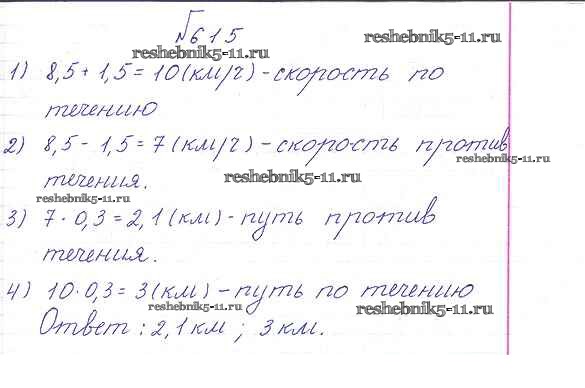 №615
reshebnik5-11.ru reshebnik5-11.ru
1) 8,5 + 1,5 = 10 (км/ч) - скорость по
течению
2) 8,5 - 1,5 = 7 (км/ч) - скорость против
reshebnik5-11.ru
течения.
reshebnik5-11.ru
reshebnik5-11.ru
3) 7 · 0,3 = 2,1 (км) - путь против
течения.
4) 10 · 0,3 = 3 (км) - путь по течению
reshebnik5-11.ru reshebnik5-11.ru
Ответ: 2,1 км; 3 км.